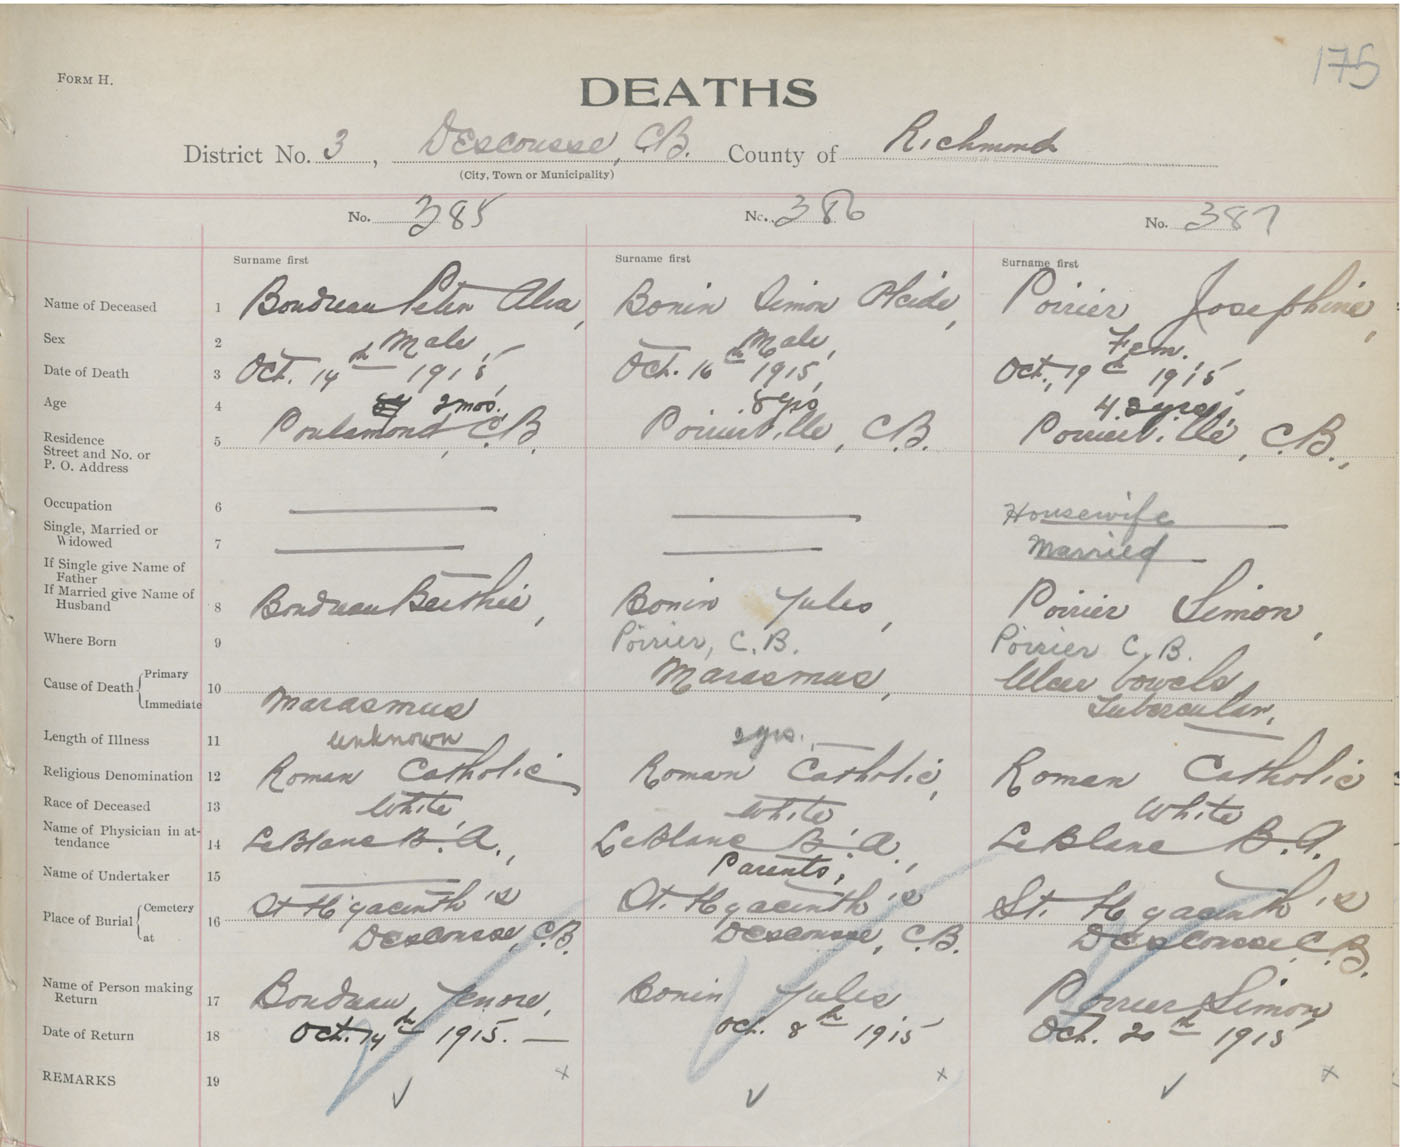 175
FORM H.
DEATHS
District No. 3, Descousse, C.B. County of Richmond
(City, Town or Municipality)
No. 385 No. 386 No. 387
Surname first Surname first Surname first
Name of Deceased 1 Boudreau Peter Alva, Bonin Simon Alcide, Poirier Josephine,
Sex 2 Male, Male, Fem.
Date of Death 3 Oct. 14th 1915, Oct. 16th 1915, Oct., 19th 1915,
Age 4 2 mos. 8 yrs 42 yrs,
Residence 5 Poulamond, C.B. Poirierville, C.B. Poirierville, C.B.,
Street and No. or
P. O. Address
Occupation 6 Housewife
Single, Married or
Widowed 7 Married
If Single give Name of
Father
If Married give Name of
Husband 8 Boudreau, Bonin Jules, Poirier Simon,
Where Born 9 Poirier, C.B. Poirier C.B.
Cause of Death { Primary Marasmus, Ulcer bowels
10
Immediate Marasmus Tubercular,
Length of Illness 11 unknown 2 yrs.
Religious Denomination 12 Roman Catholic Roman Catholic, Roman Catholic
Race of Deceased 13 White, White White
Name of Physician in at-
tendance 14 LeBlanc B.A., LeBlanc B.A., LeBlanc B.A.
Name of Undertaker 15 Parents,
Place of Burial { Cemetery St. Hyacinth's St. Hyacinth's St. Hyacinth's
16
at Descousse, C.B. Descousse, C.B. Descousse, C.B.
Name of Person making
Return 17 Boudreau, Bonin Jules Poirier Simon,
Date of Return 18 Oct. 14th 1915. Oct. 8th 1915 Oct. 20th 1915
REMARKS 19